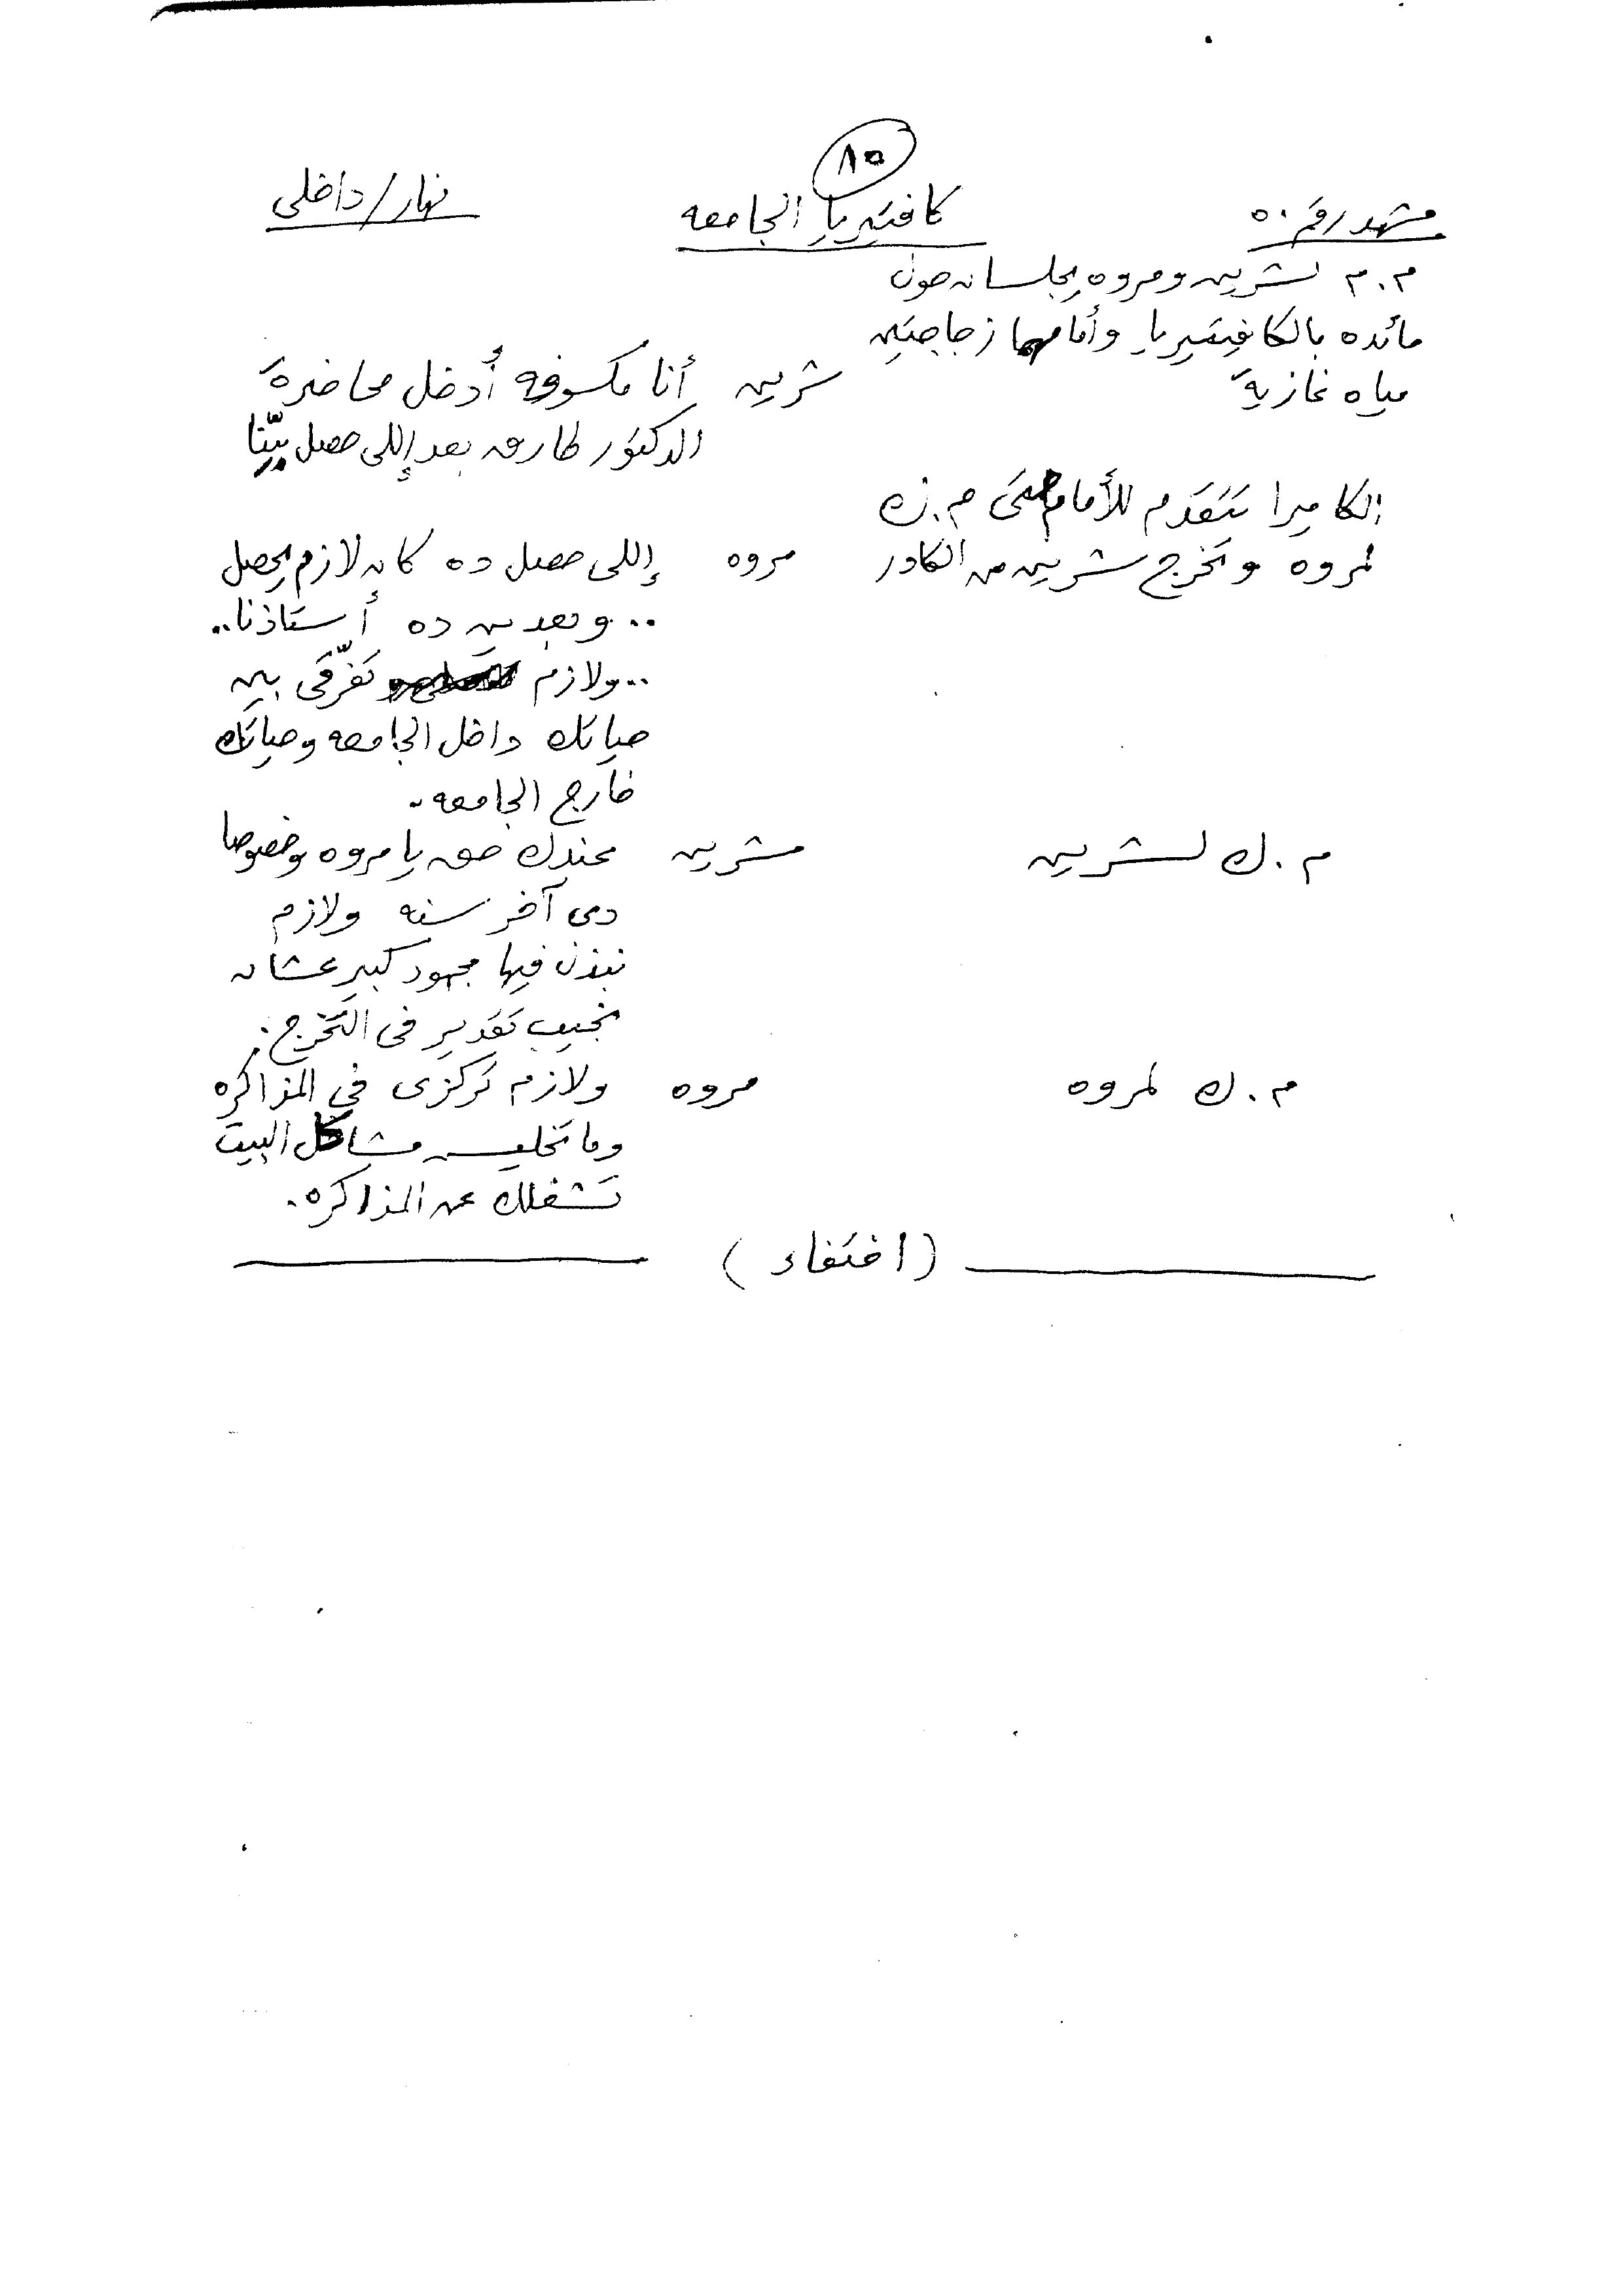 ٨٥
مشهد رقم ٥٠ كافتيريا الجامعه نهار/داخلى
م.م لشرين ومروه يجلسان حول
مائده بالكافيتيريا وأمامهما زجاجتين
مياه غازية شرين أنا مكسوفه أدخل محاضرة
الدكتور طارق بعد إللى حصل بيّنا
الكاميرا تتقدم للأمام حتى م.ك
لمروه وتخرج شرين من الكادر مروه إللى حصل ده كان لازم يحصل
.. وبعدين ده أستاذنا..
.. ولازم تفرّقى بين
حياتك داخل الجامعه وحياتك
خارج الجامعه.
م.ك لشرين شرين عندك حق يا مروه وخصوصا
دى آخر سنه ولازم
نبذل فيها مجهود كبير عشان
نجيب تقدير فى التخرج.
م.ك لمروه مروه ولازم تركزى فى المذاكره
وما تخليش مشاكل البيت
تشغلك عن المذاكره.
(اختفاء)